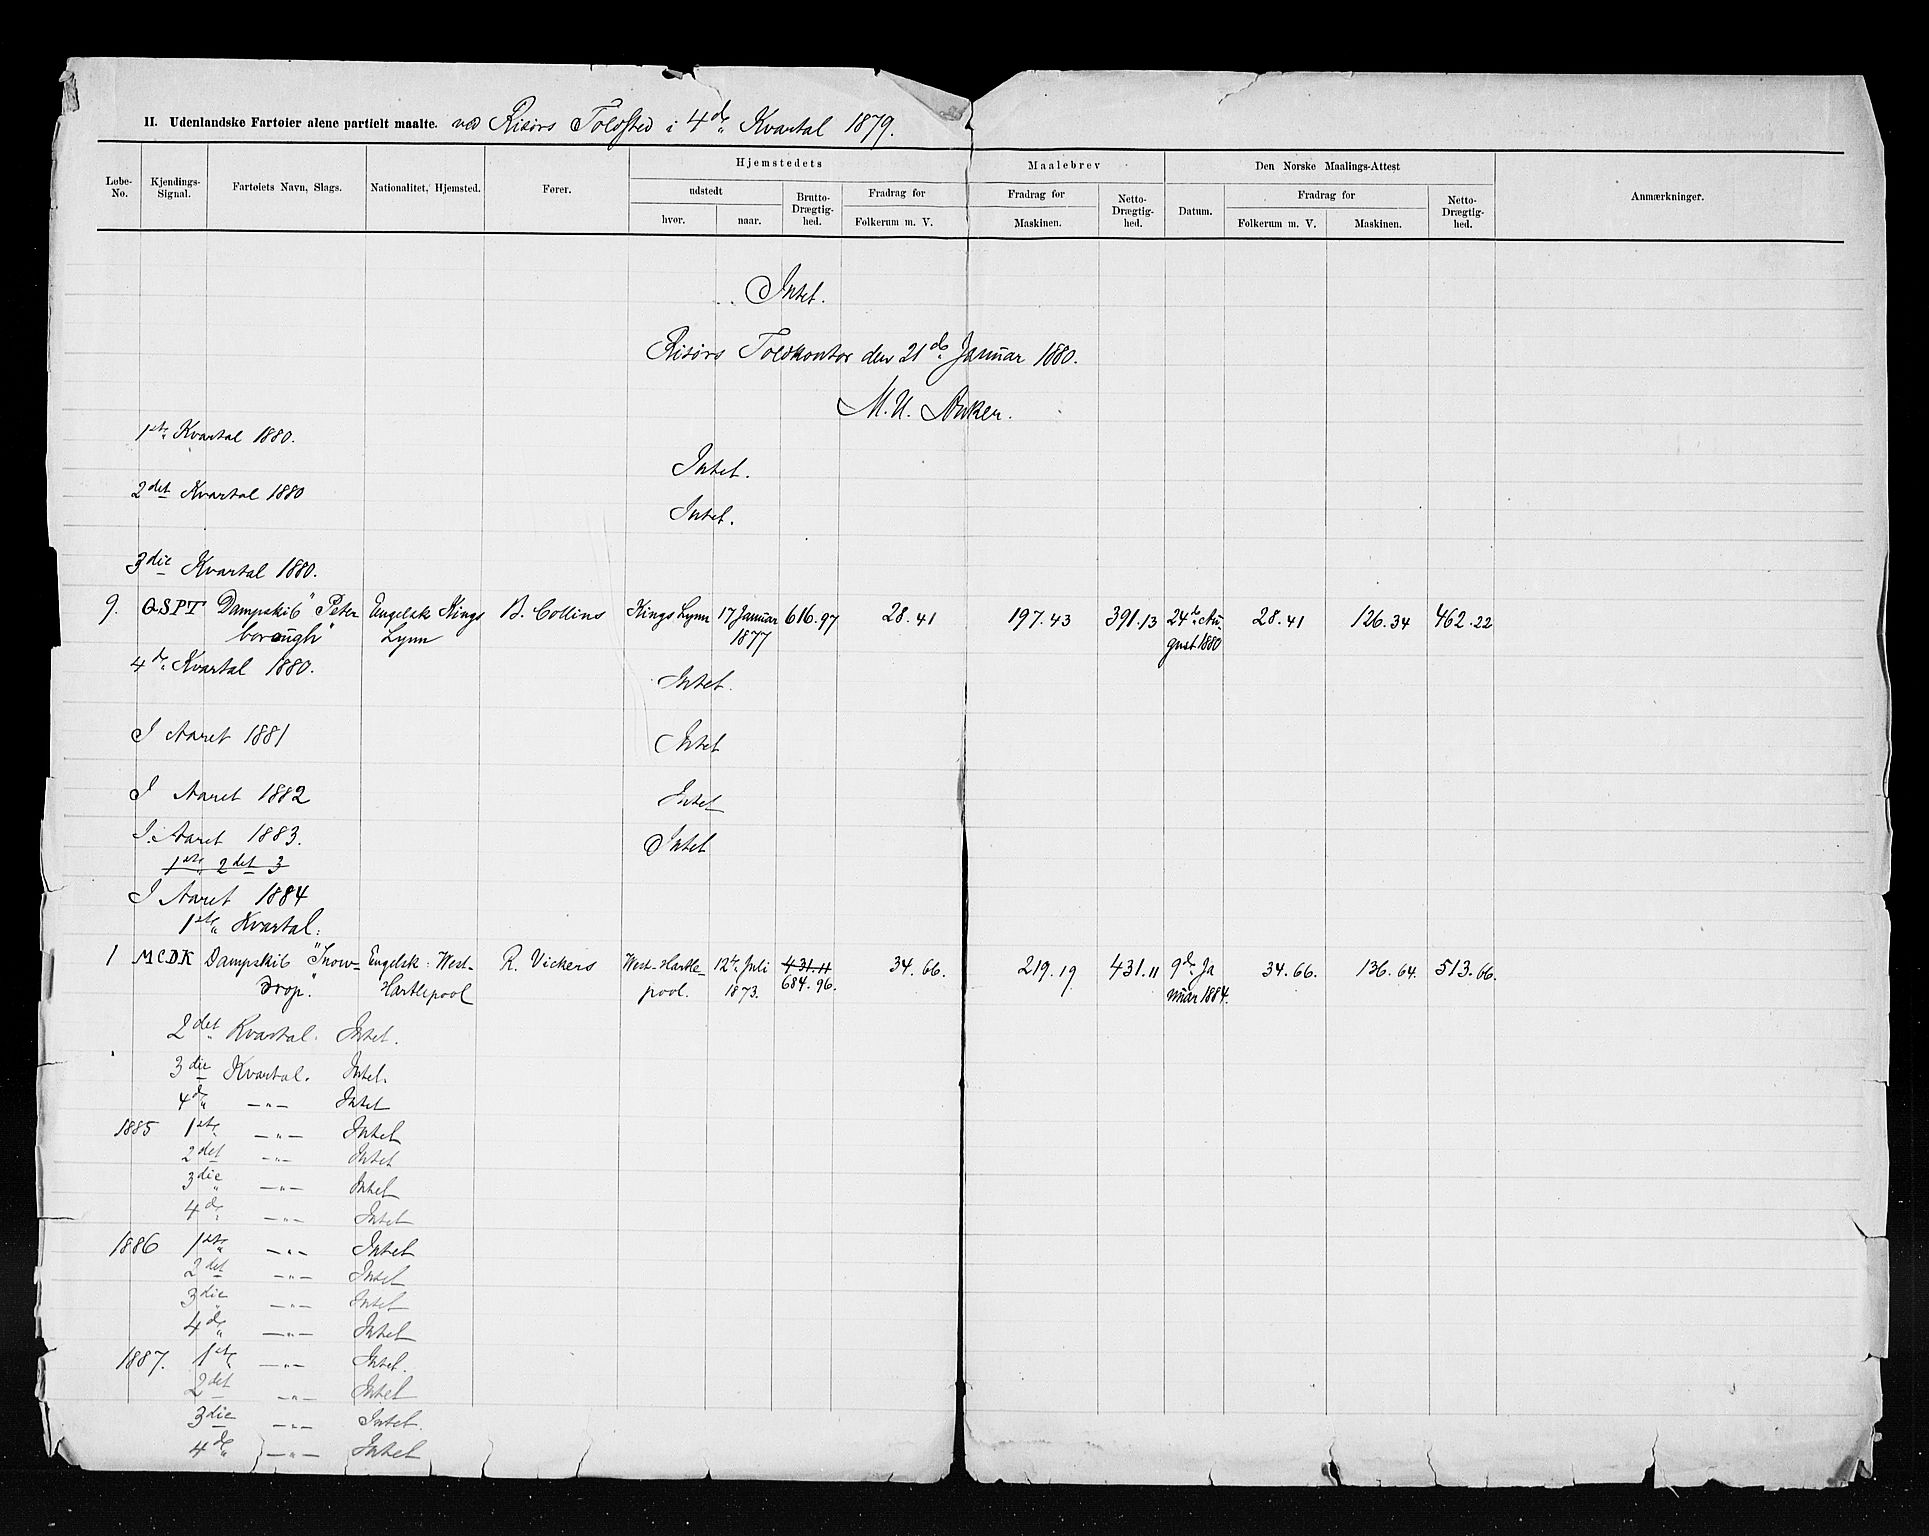 II. Udenlandske Fartøier alene partielt maalte. ved Risørs Toldsted i 4de Kvartal 1879.
Hjemstedets Maalebrev Den Norske Maalings-Attest
Løbe-No. Kjendings-Signal. Fartøiets Navn, Slags. Nationalitet, Hjemsted. Fører. udstedt Brutto-Drægtig-hed. Fradrag for Fradrag for Netto-Drægtig-hed. Datum. Fradrag for Netto-Drægtig-hed. Anmærkninger.
hvor. naar. Folkerum m. V. Maskinen. Folkerum m. V. Maskinen.
Intet.
Risørs Toldkontor den 21de Januar 1880.
M. U. Anker.
1ste Kvartal 1880.
Intet.
2det Kvartal 1880
Intet.
3die Kvartal 1880.
9. QSPT Dampskib "Peter Engelsk Kings B. Collins Kings Lynn 17 Januar 616.97 28.41 197.43 391.13 24de Au- 28.41 126.34 462.22
borough" Lynn 1877 gust 1880
4de Kvartal 1880. Intet.
I Aaret 1881 Intet
I Aaret 1882 Intet
I Aaret 1883. Intet
1ste 2det 3
I Aaret 1884
1ste Kvartal:
1 MCDK Dampskib "Snow- Engelsk: West- R. Vickers West-Hartle- 12te Juli 431.11 34.66. 219.19 431.11 9de Ja 34.66. 136.64. 513.66.
drop." Hartlepool pool. 1873. 684.96. nuar 1884.
2det Kvartal. Intet.
3die Kvartal. Intet.
4de —"— Intet
1885 1ste —"— Intet
2det —"— Intet
3die —"— Intet
4de —"— Intet
1886 1ste —"— Intet
2det —"— Intet
3die —"— Intet
4de —"— Intet
1887. 1ste —"— Intet.
2det —"— Intet
3die —"— Intet.
4de —"— Intet